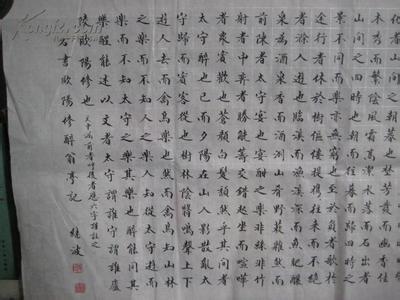 化者山間之朝暮也野芳發而幽香佳
木秀而繁陰風霜高潔水落而石出者
山間之四時也朝而往暮而歸四時之
景不同而樂亦無窮也至於負者歌於
途行者休於樹傴僂提攜往來而不絕
者滁人遊也臨溪而漁溪深而魚肥釀
泉為酒泉香而酒洌山肴野蔌雜然而
前陳者太守宴也宴酣之樂非絲非竹
射者中弈者勝觥籌交錯起坐而喧嘩
者衆賓歡也蒼顏白髮頹然乎其間者
太守醉也已而夕陽在山人影散亂太
守歸而賓客從也樹林陰翳鳴聲上下
遊人去而禽鳥樂也然而禽鳥知山林
之樂而不知人之樂人知從太守遊而
樂而不知太守之樂其樂也醉能同其
樂醒能述以文者太守謂誰守謂誰廬
陵歐陽修也 文中漏前者呼後者應六字補記之
右書歐陽修醉翁亭記 継波